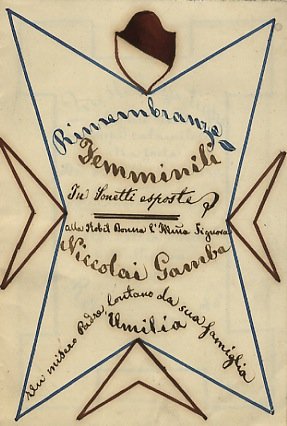 Rimembranze
Femminili
In Sonetti esposte
alla Nobil Donna l'Illma Signora
Niccolai Gamba
Umilia
un misero Padre lontano da sua famiglia